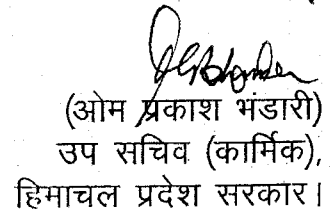 (ओम प्रकाश भंडारी)
उप सचिव (कार्मिक),
हिमाचल प्रदेश सरकार।